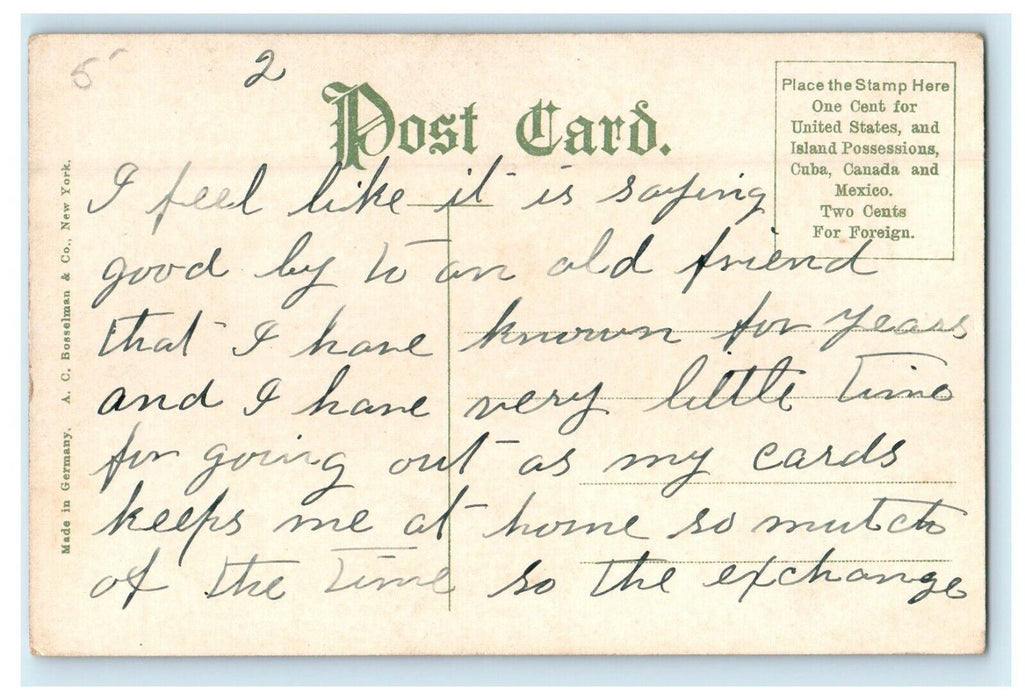 5
2
Post Card.
Place the Stamp Here
One Cent for
United States, and
Island Possessions,
Cuba, Canada and
Mexico.
Two Cents
For Foreign.
Made in Germany. A. C. Bosselman & Co., New York.
I feel like it is saying
good by to an old friend
that I have known for years
and I have very little time
for going out as my cards
keeps me at home so mutch
of the time so the exchange